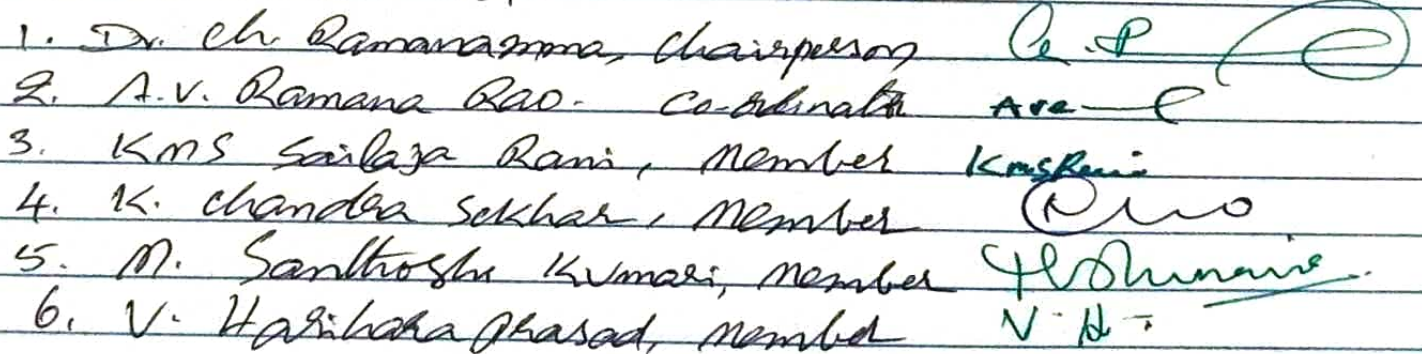 1. Dr. Ch. Ramanamma, Chairperson
2. A.V. Ramana Rao. Co-ordinator Ava
3. KMS Sailaja Rani, Member KmsRani
4. K. Chandra Sekhar, Member
5. M. Santhoshi Kumari, Member
6. V. Harihara Prasad, Member V. H